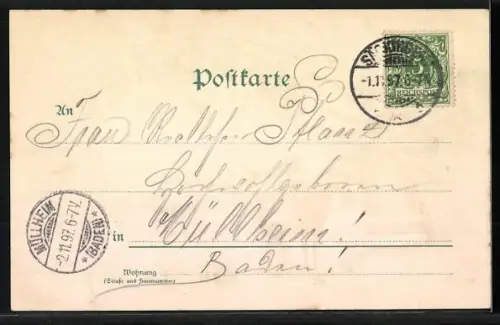 Postkarte
-1.11.97.6-7
REICHSPOST
An
Frau
Hochwohlgeboren
MÜLLHEIM
-2.11.97.6-7V.
*(BADEN)*
in Müllheim!
Baden!
Wohnung
(Straße und Hausnummer)